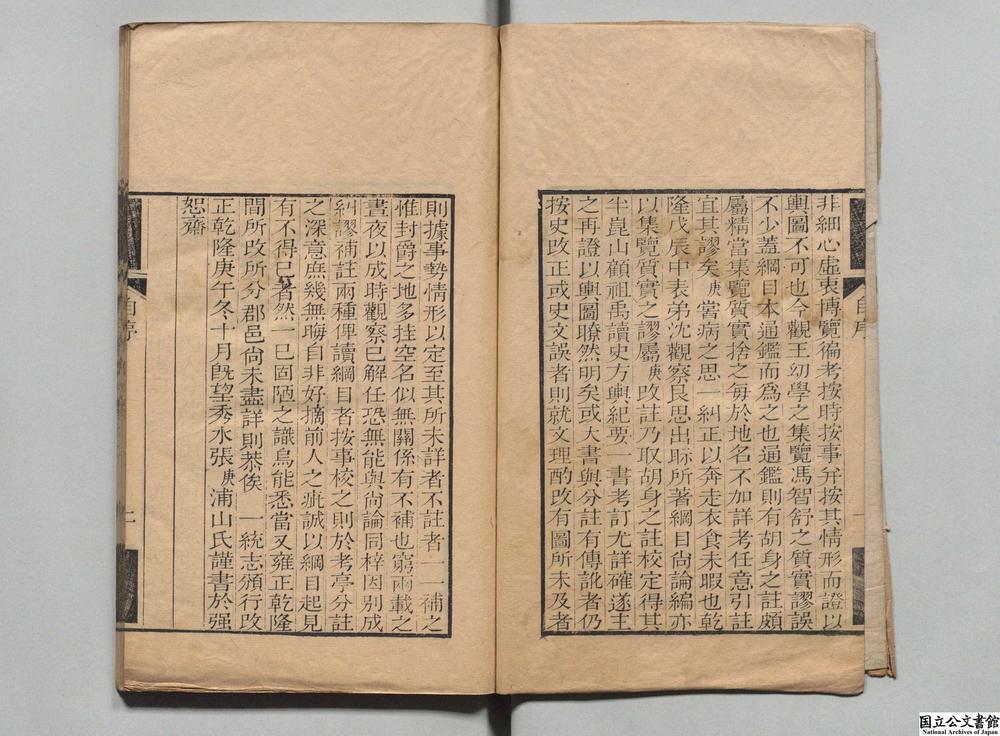 非細心虛衷博覽徧考按時按事幷按其情形而證以
輿圖不可也今觀王幼學之集覽馮智舒之質實謬誤
不少蓋綱目本通鑑而爲之也通鑑則有胡身之註頗
屬精當集覽質實捨之每於地名不加詳考任意引註
宜其謬矣庚嘗病之思一糾正以奔走衣食未暇也乾
隆戊辰中表弟沈觀察艮思出眎所著綱目尙論編亦
以集覽質實之謬屬庚改註乃取胡身之註校定得其
半崑山顧祖禹讀史方輿紀要一書考訂尤詳確遂主
之再證以輿圖瞭然明矣或大書與分註有傳訛者仍
按史改正或史文誤者則就文理酌改有圖所未及者
自序
則據事勢情形以定至其所未詳者不註者一一補之
惟封爵之地多挂空名似無關係有不補也窮兩載之
晝夜以成時觀察已解任恐無能與尙論同梓因別成
糾謬補註兩種俾讀綱目者按事校之則於考亭分註
之深意庶幾無晦自非好摘前人之疵誠以綱目起見
有不得已者然一已固陋之識烏能悉當又雍正乾隆
間所改所分郡邑尙未盡詳則恭俟 一統志頒行改
正乾隆庚午冬十月旣望秀水張庚浦山氏謹書於强
恕齋
二
国立公文書館
National Archives of Japan